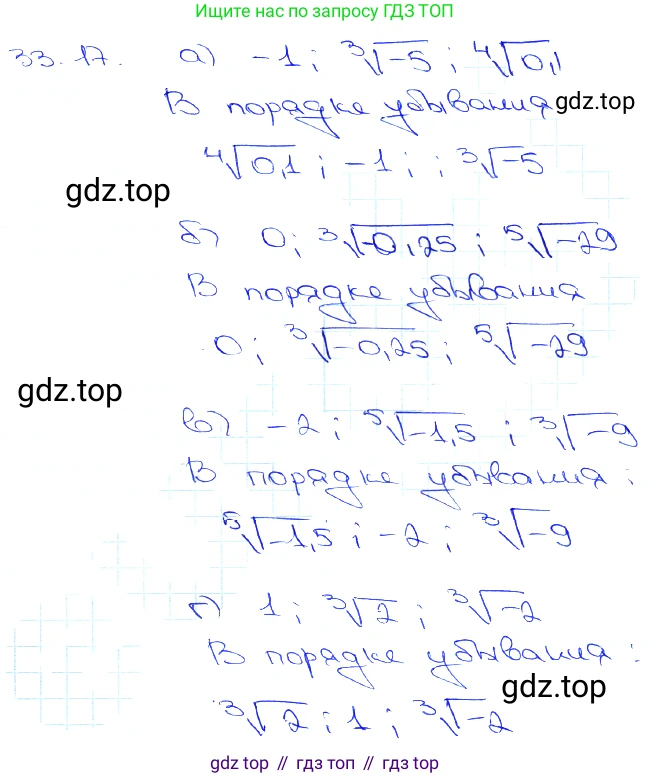 Ищите нас по запросу ГДЗ ТОП
33.17. а) -1; ∛-5; ∜0,1
В порядке убывания gdz.top
∜0,1; -1; ; ∛-5
gdz.top
б) 0; ∛-0,25; ⁵√-29
В порядке убывания
0; ∛-0,25; ⁵√-29
gdz.top
в) -2; ⁵√-1,5; ∛-9
В порядке убывания:
⁵√-1,5; -2; ∛-9
г) 1; ∛2; ∛-2
В порядке убывания:
gdz.top
∛2; 1; ∛-2
gdz top // гдз топ // gdz.top